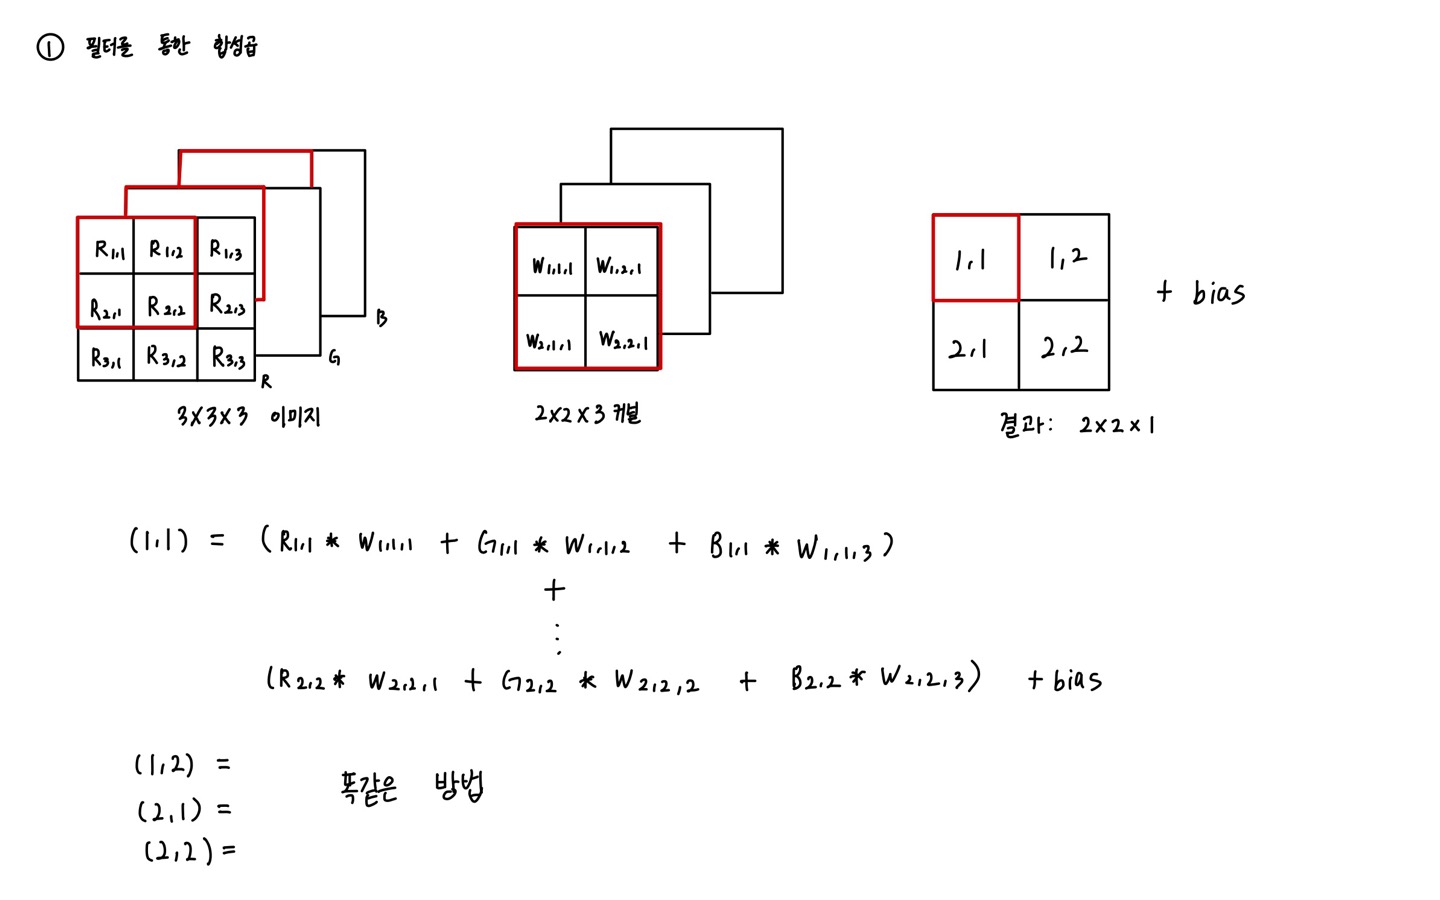 ① 필터를 통한 합성곱
R1,1 R1,2 R1,3
R2,1 R2,2 R2,3
R3,1 R3,2 R3,3
R
G
B
3x3x3 이미지
W1,1,1 W1,2,1
W2,1,1 W2,2,1
2x2x3 커널
1,1 1,2
2,1 2,2
+ bias
결과: 2x2x1
(1,1) = (R1,1 * W1,1,1 + G1,1 * W1,1,2 + B1,1 * W1,1,3)
+
⋮
(R2,2 * W2,2,1 + G2,2 * W2,2,2 + B2,2 * W2,2,3) + bias
(1,2) =
(2,1) =
똑같은 방법
(2,2) =